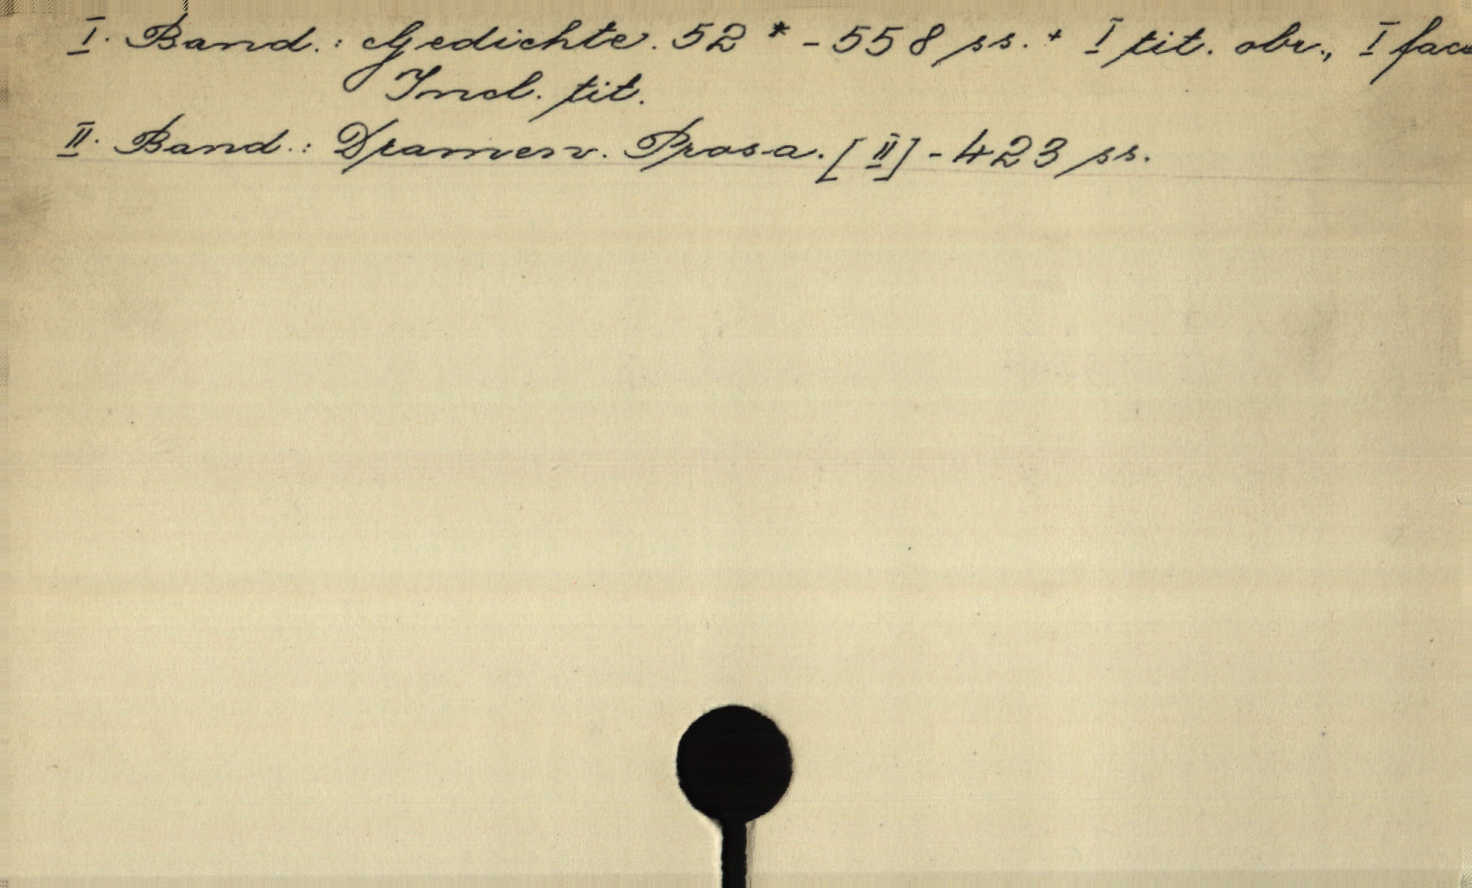 I. Band.: Gedichte. 52* - 558 ss. + I tit. obr., I facs
Incl. tit.
II. Band.: Dramen. Prosa. [II] - 423 ss.